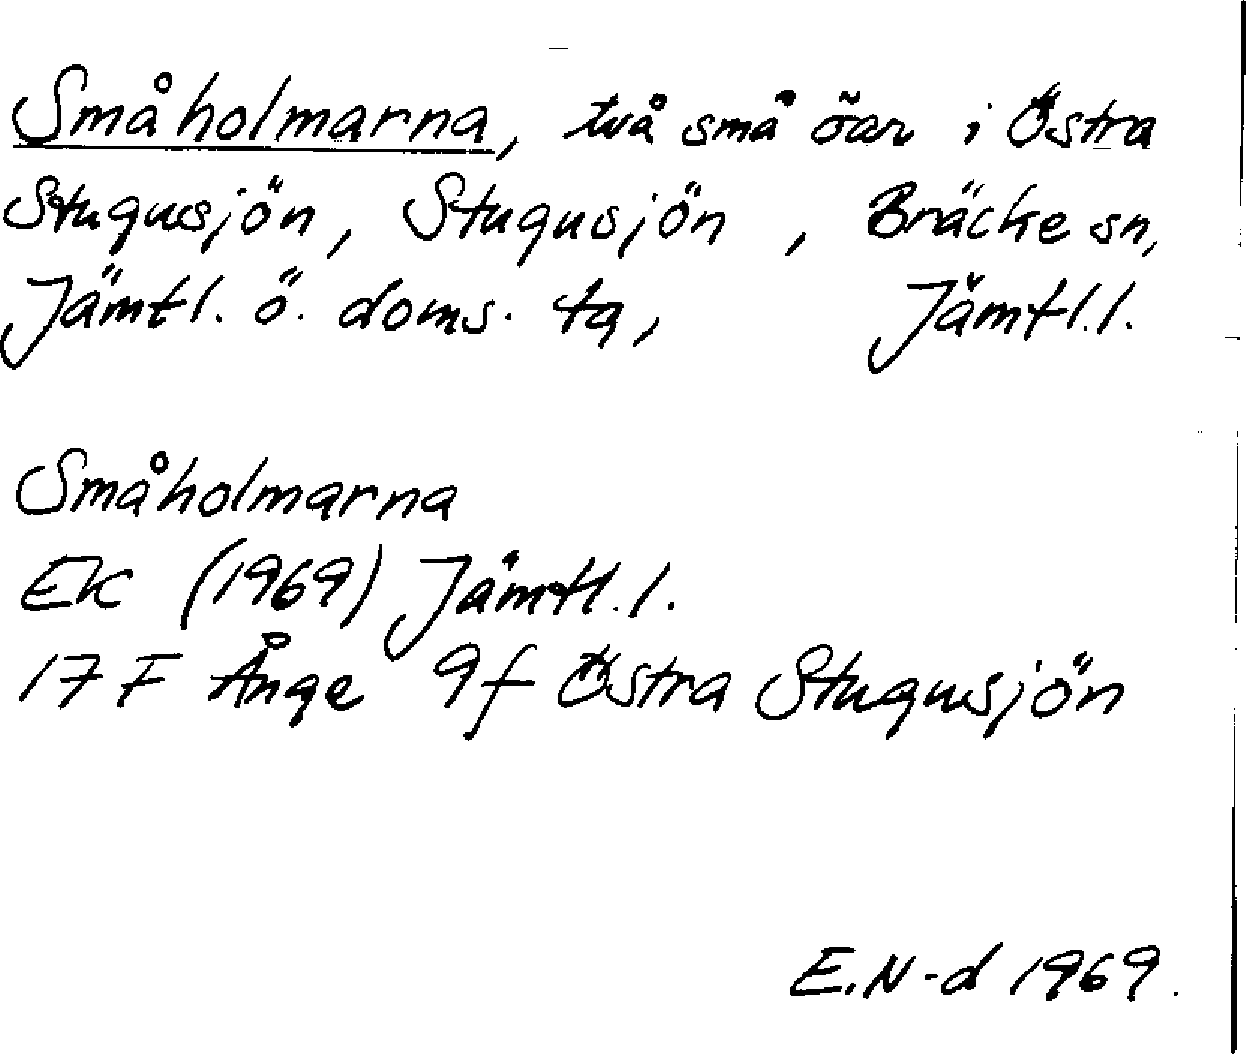 Småholmarna, två små öar i Östra
Stugusjön, Stugusjön, Bräcke sn,
Jämtl. ö. doms. tg, Jämtl. l.
Småholmarna
EK (1969) Jämtl. l.
17 F Ånge 9f Östra Stugusjön
E. N-d 1969.